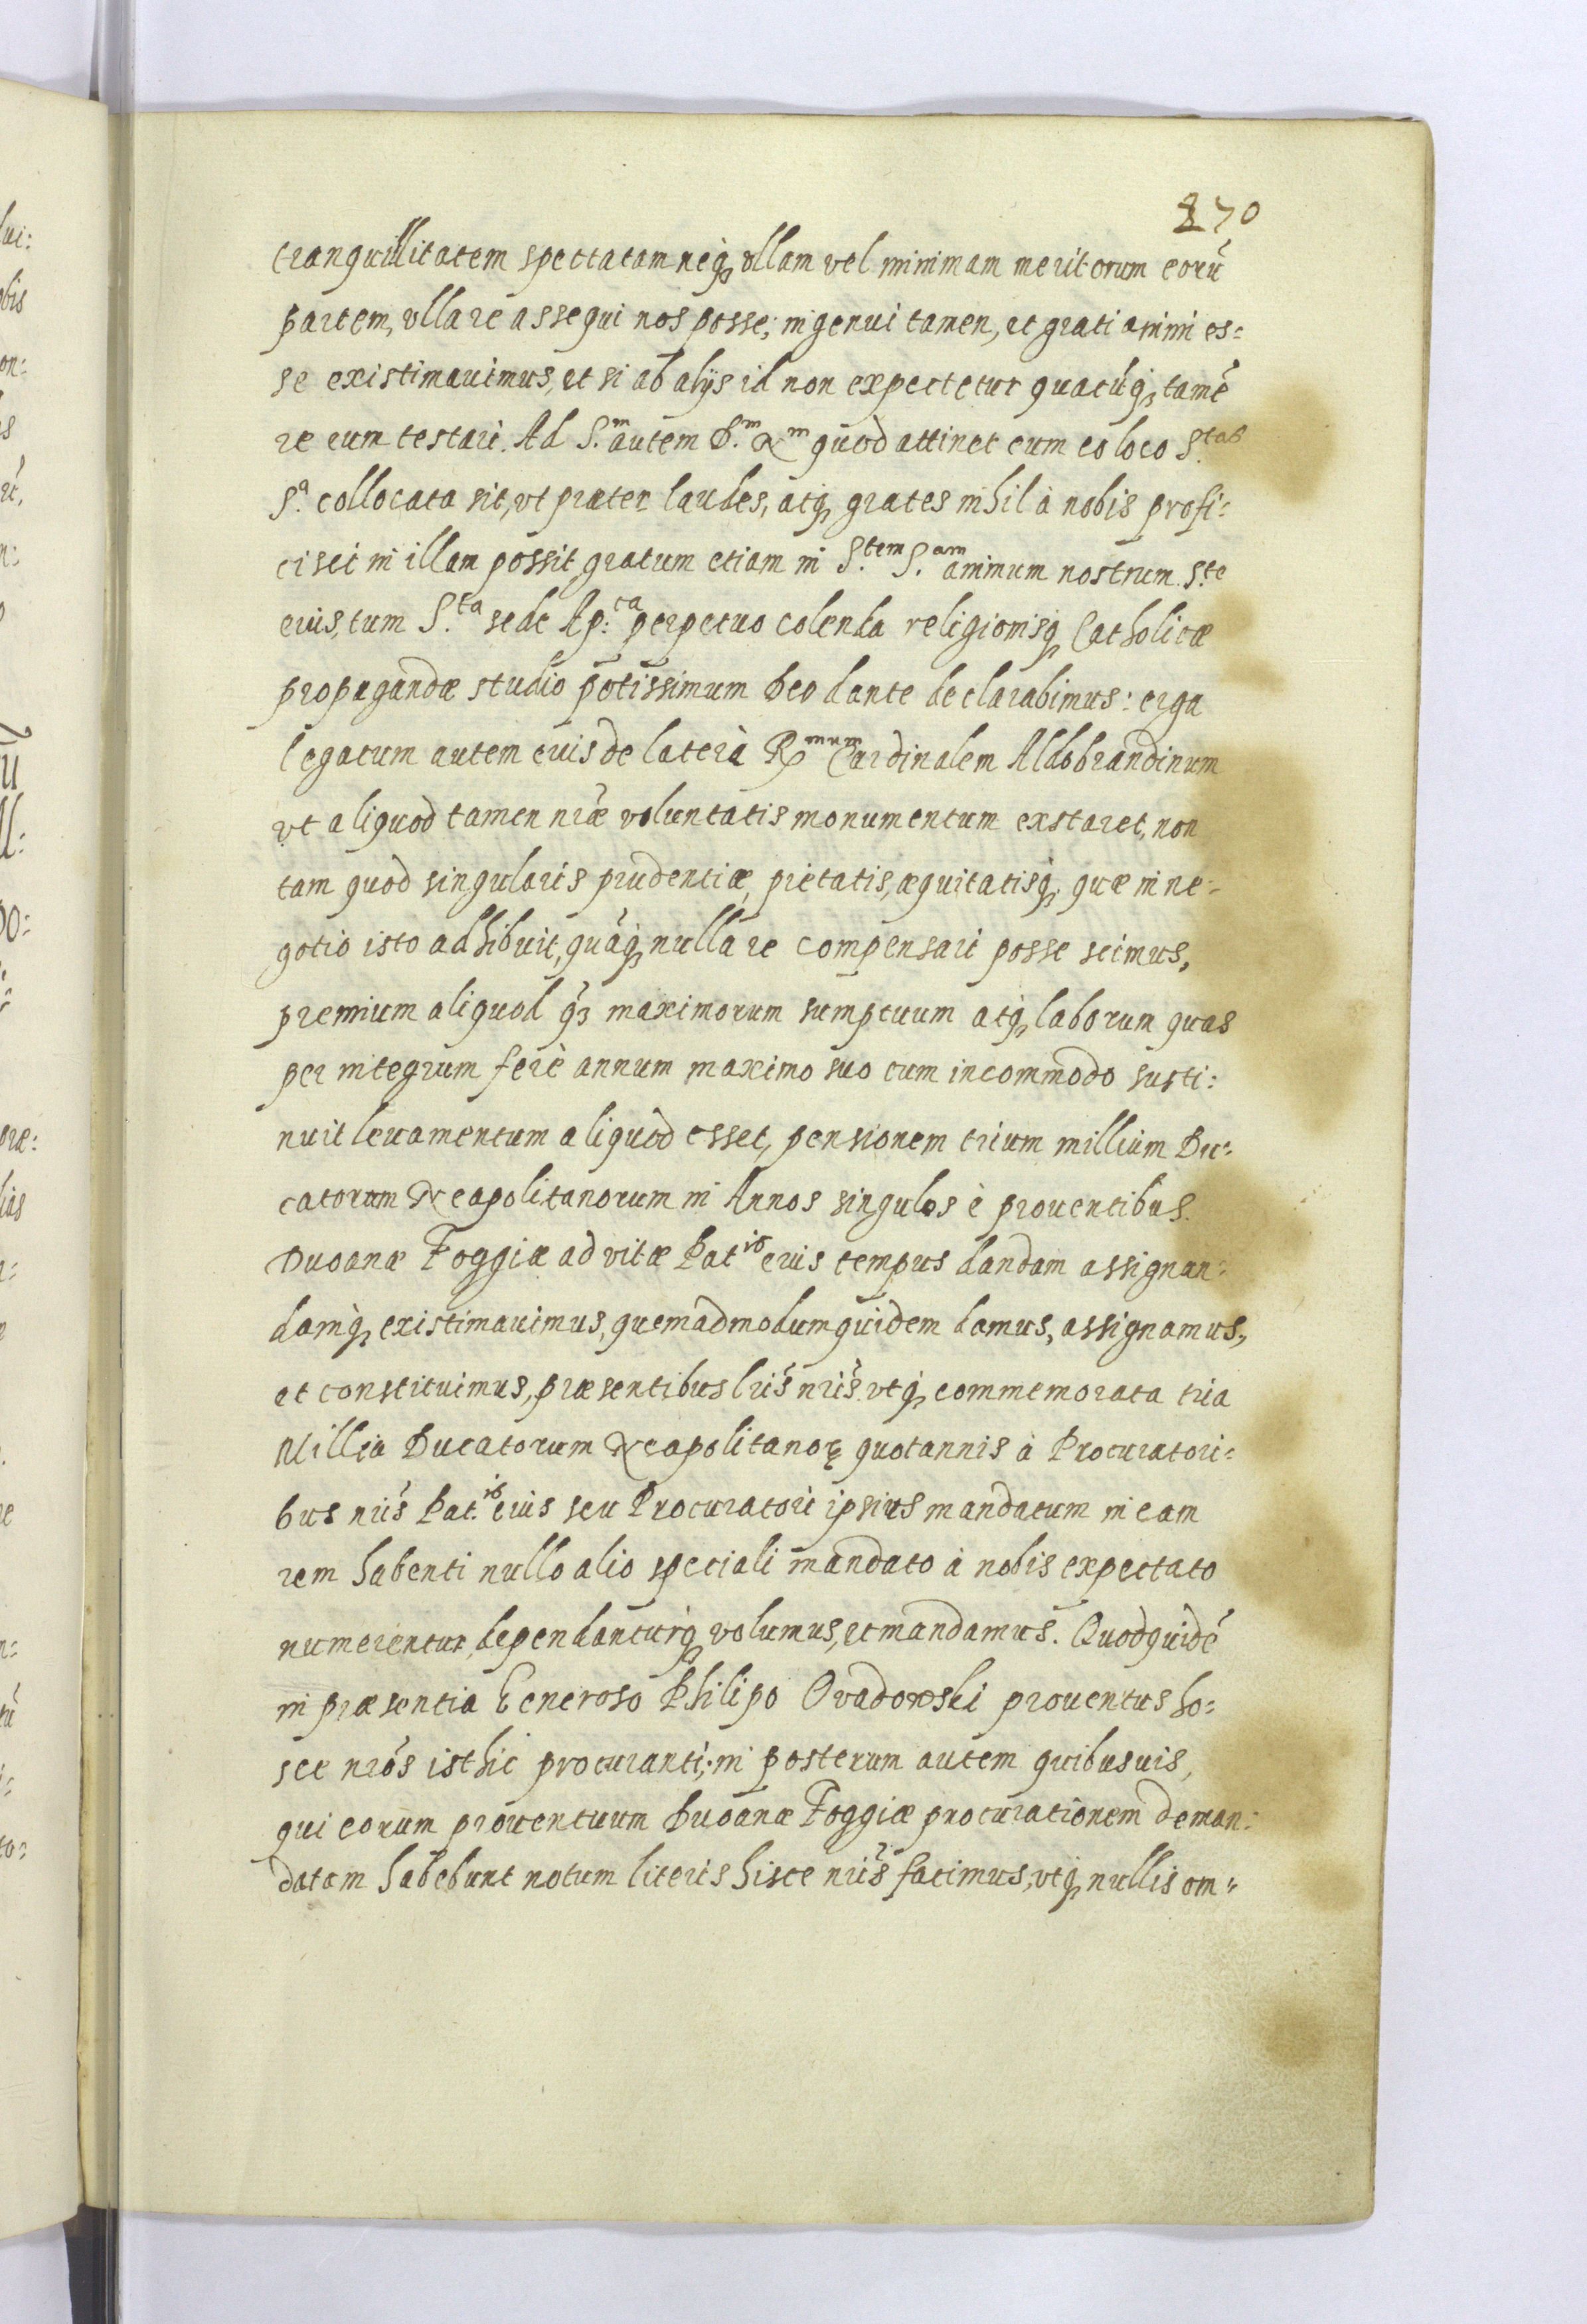 270
tranquillitatem spectatam neq₃ vllam vel minimam meritorum eorũ
partem, vlla re assequi nos posse; ingenui tamen, et grati animi es:
se existimauimus, et si ab alijs id non expectetur quacũq₃ tamẽ
re eum testari. Ad S.ᵐ autem D.ᵐ Nᵐ quod attinet cum eo loco S.ᵗᵃˢ
Sᵃ. collocata sit, vt præter laudes, atq₃ grates nihil à nobis profi:
cisci in illam possit, gratum etiam in S.ᵗᵉᵐ S.ᵃᵐ animum nostrum S.ᵗᵉ
eius, tum S.ᵗᵃ sede Ap:ᶜᵃ perpetuo colenda religionisq₃ Catholicæ
propagandæ studio potissimum Deo dante declarabimus: erga
legatum autem eius de laterà Rᵐᵘᵐ Cardinalem Aldobrandinum
vt aliquod tamen nr̃æ voluntatis monumentum exstaret, non
tam quod singularis prudentiæ, pietatis, æquitatisq₃ quæ in ne:
gotio isto adhibuit, quãq₃ nulla re compensari posse scimus,
premium aliquod q̃₃ maximorum sumptuum atq₃ laborum quas
per integrum ferè annum maximo suo cum incommodo susti:
nuit leuamentum aliquod esset, pensionem trium millium Du:
catorum Neapolitanorum in Annos singulos è prouentibus
Duoanæ Foggiæ ad vitæ Patⁱˢ eius tempus dandam assignan:
damq₃ existimauimus, quemadmodum quidem damus, assignamus,
et constituimus, præsentibus lr̃is nr̃is vtq₃ commemorata tria
Millia Ducatorum Neapolitanoꝝ quotannis à Procuratori:
bus nr̃is Pat.ⁱˢ eius seu Procuratori ipsius mandatum in eam
rem habenti nullo alio speciali mandato à nobis expectato
numerentur, dependanturq₃ volumus, et mandamus. Quod quidẽ
in præsentia Generoso Philipo Ovadowski prouentus ho:
sce nr̃os isthic procuranti; in posterum autem quibusuis,
qui eorum prouentuum Duoanæ Foggiæ procurationem deman:
datam habebunt notum literis hisce nr̃is facimus, vtq₃ nullis om: